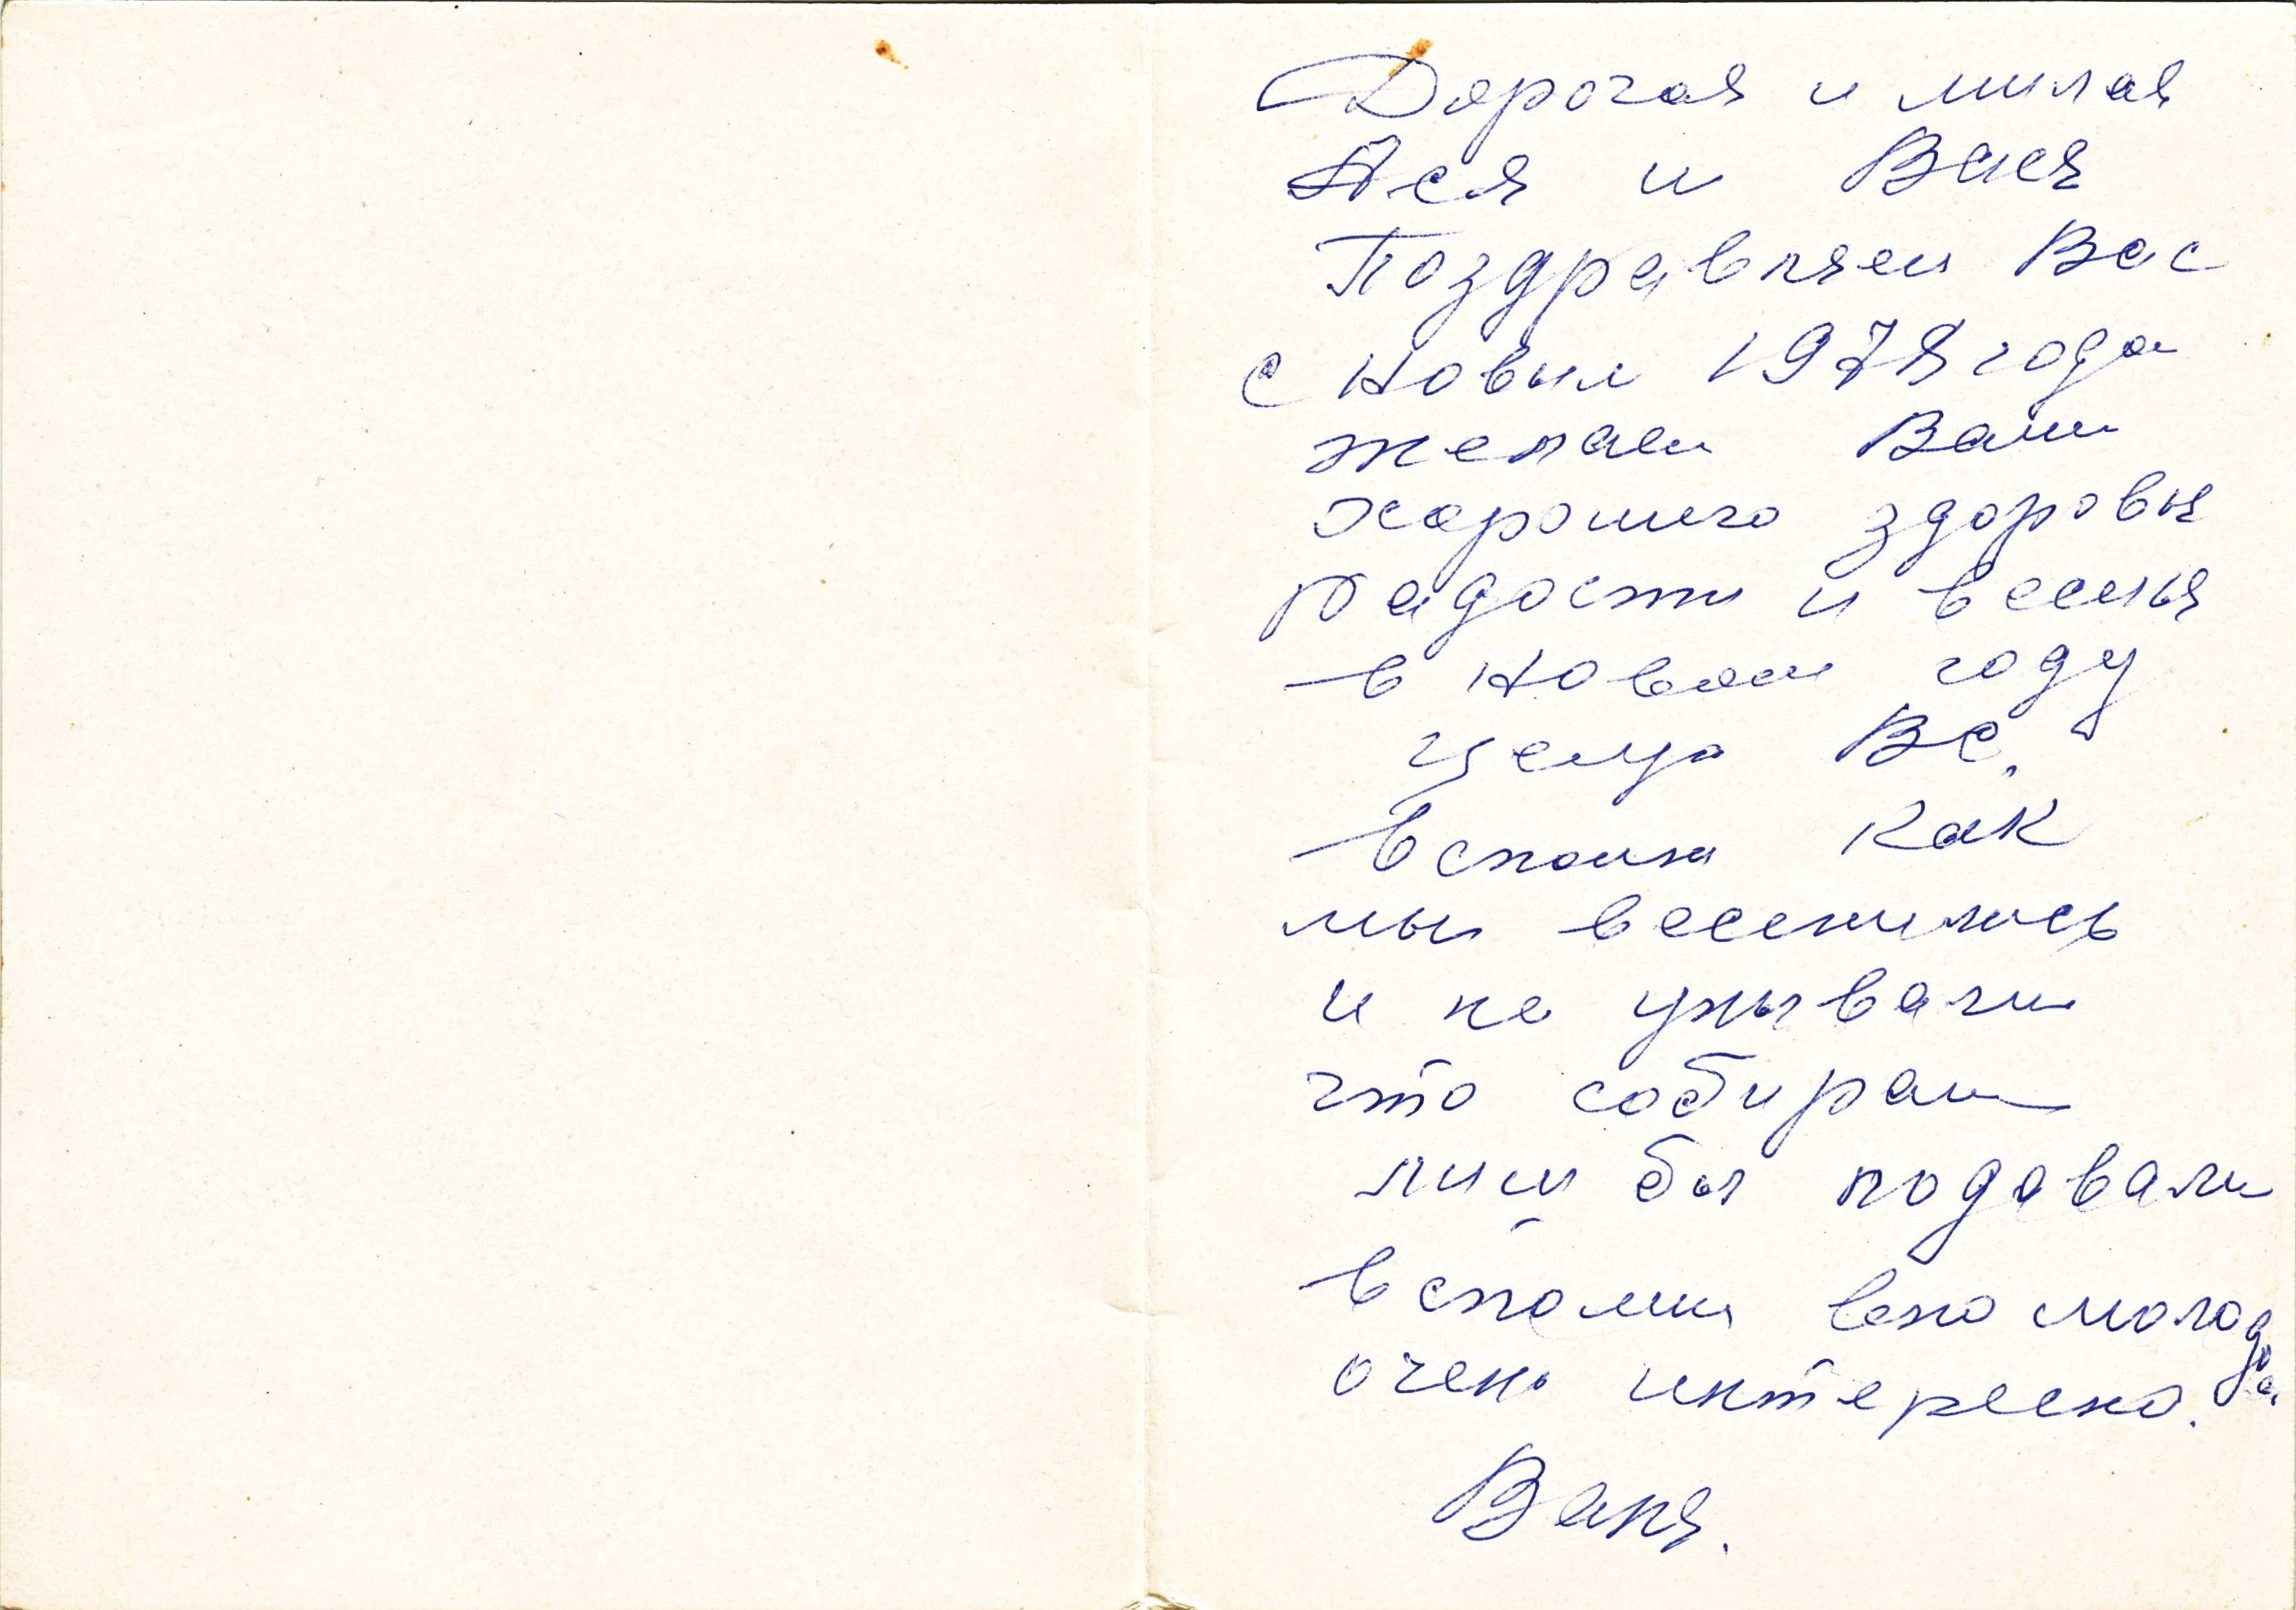 Дорогая и милая
Ася и Вася
Поздравляем Вас
с Новым 1978 года
желаем Вам
хорошего здоровья
радости и веселья
в Новом году
Целую Вс.
вспомни как
мы веселились
и не унывали
что собирали
лиш бы подавали
вспомни молода
очень интересно.
Ваня.